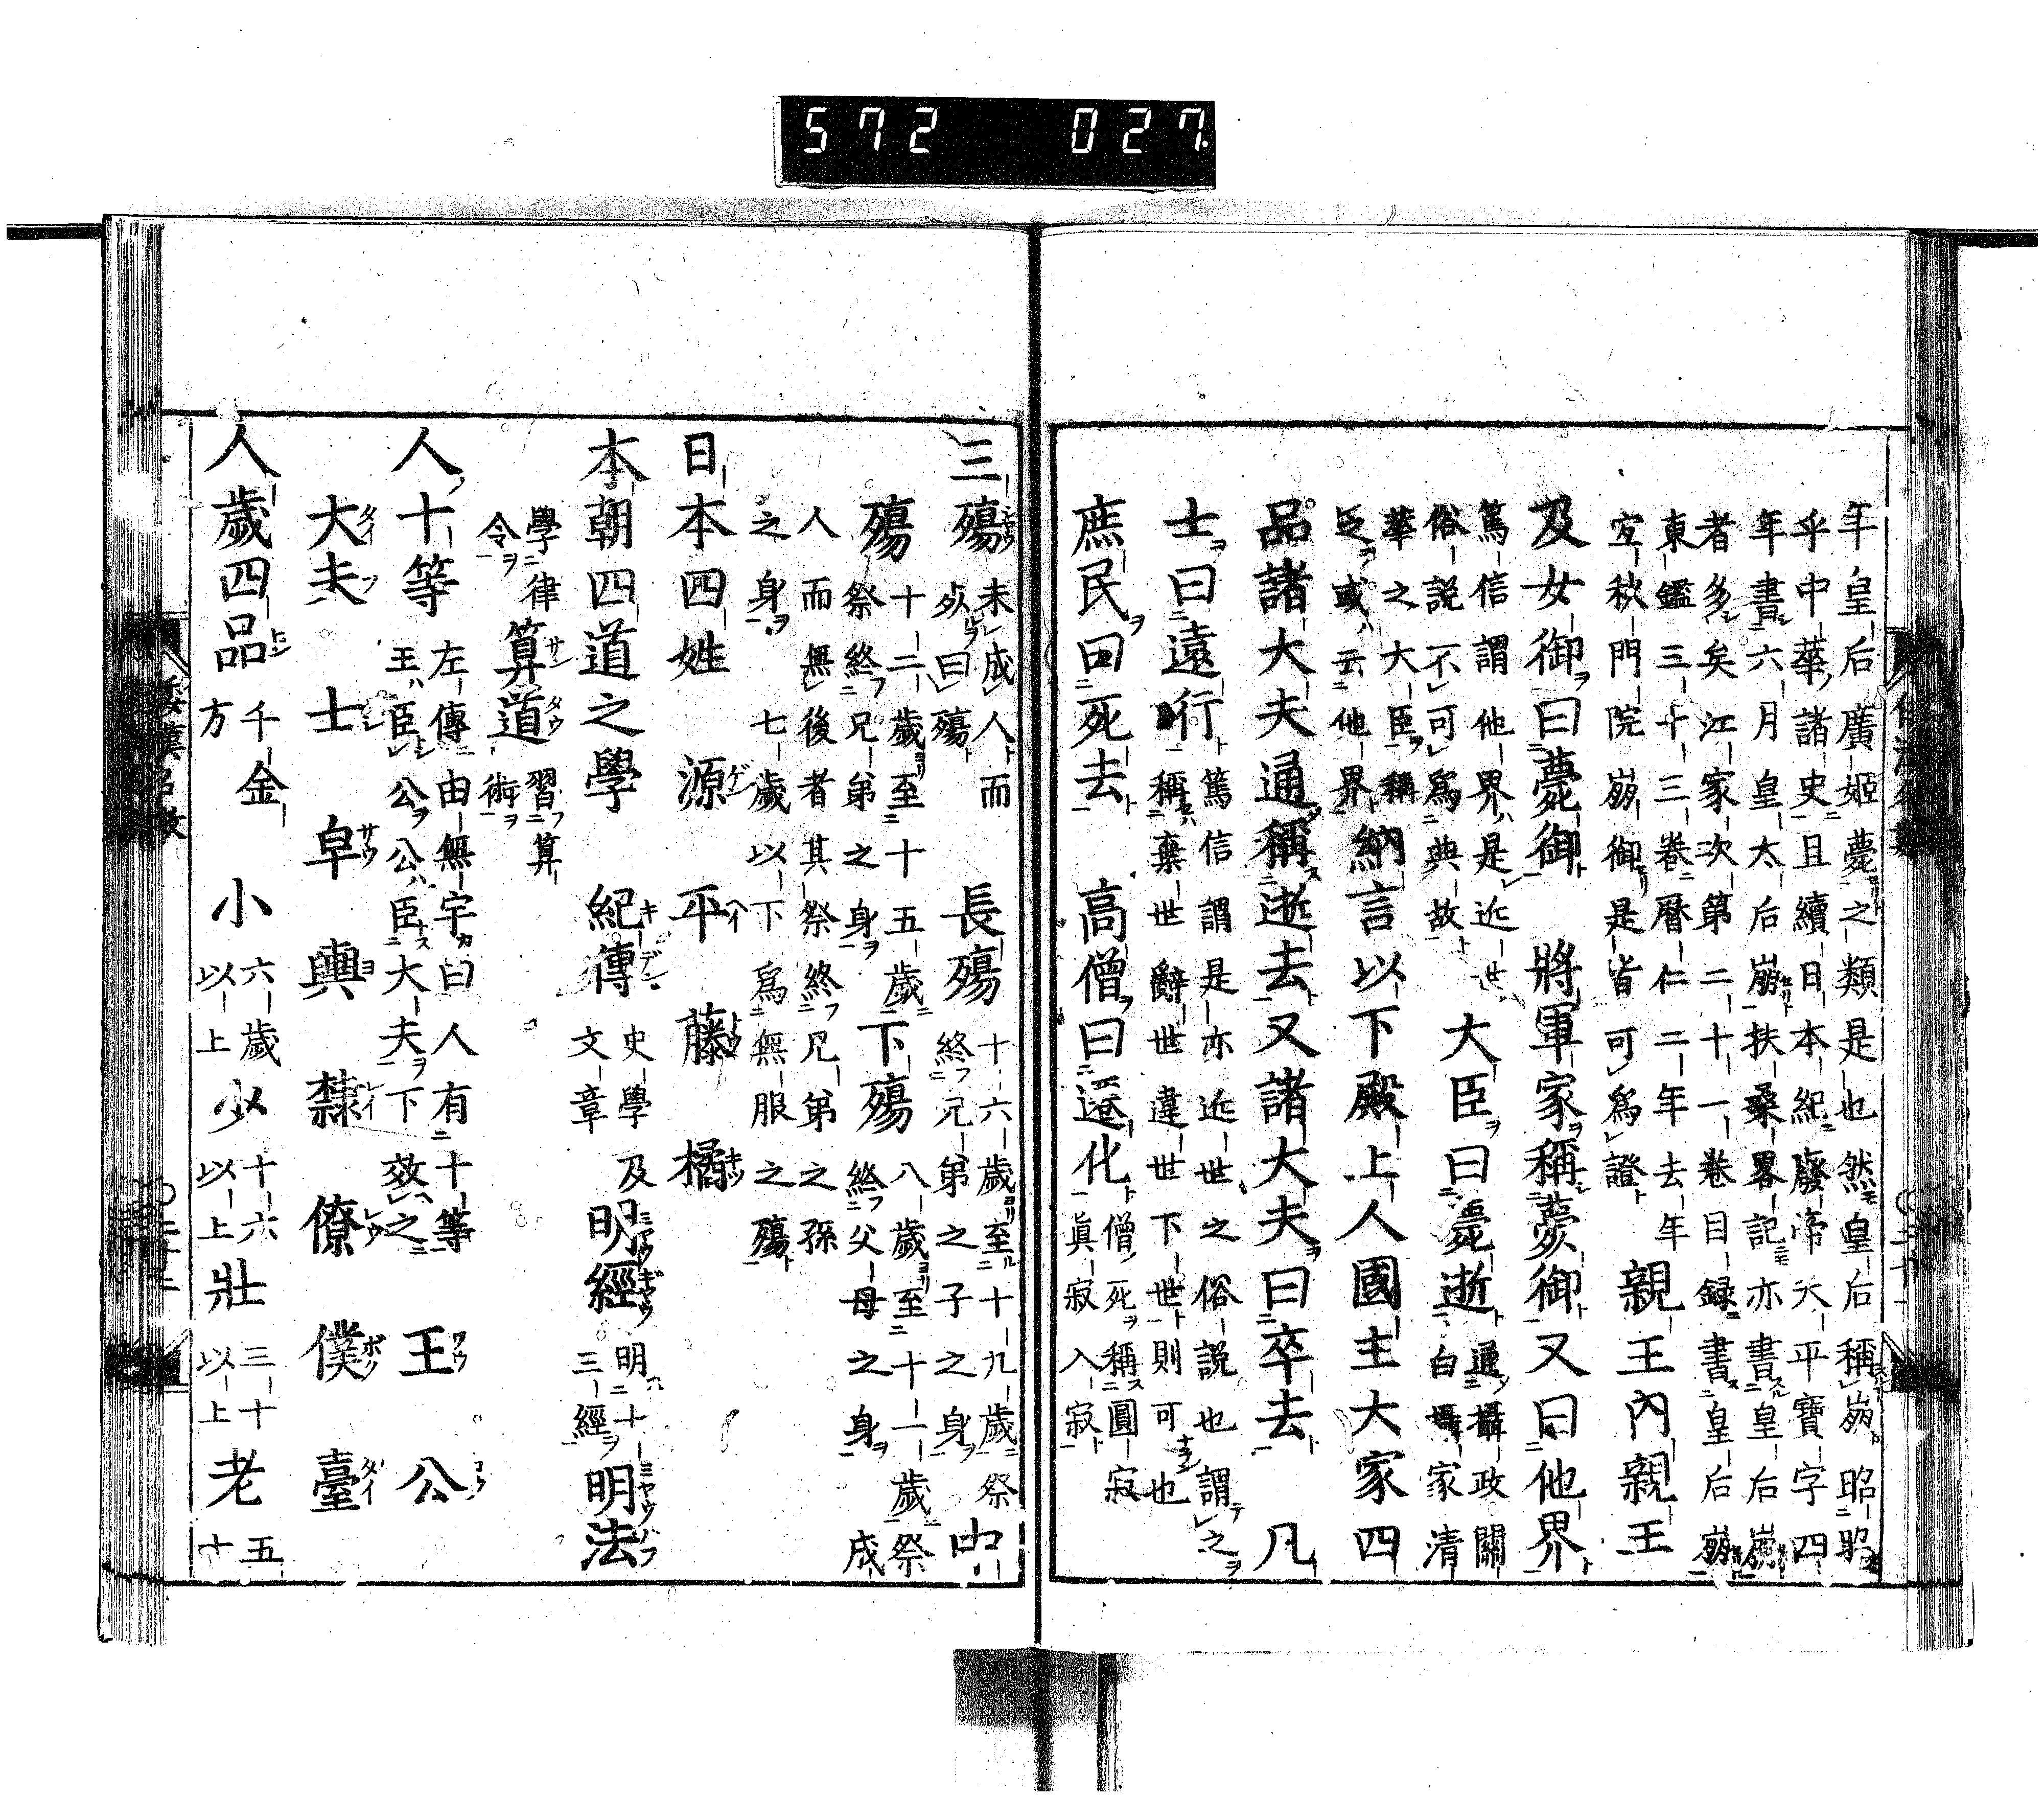 572 027
年皇后廣姬薨之類是也然皇后稱崩昭昭
乎中華諸史且續日本紀廢帝天平寶字四
年書六月皇太后崩扶桑畧記亦書皇后崩
者多矣江家次第二十一卷目録書皇后崩
東鑑三十三卷曆仁二年去年
宜秋門院崩御是皆可爲證
親王内親王
及女御曰薨御 將軍家稱薨御又曰他界
篤信謂他界是近世
俗説不可爲典故
大臣曰薨逝
通攝政關
白攝家清
華之大臣稱
之或云他界
納言以下殿上人國主大家四
品諸大夫通稱逝去又諸大夫曰卒去 凡
士曰遠行
篤信謂是亦近世之俗説也謂之
稱棄世辭世違世下世則可也
庶民曰死去 高僧曰遷化
僧死稱圓寂
眞寂入寂
三殤
未成人而
死曰殤
長殤
十六歲至十九歲祭
終兄弟之子之身
中
殤
十二歲至十五歲
祭終兄弟之身
下殤
八歲至十一歲祭
終父母之身 成
人而無後者其祭終兄弟之孫
之身 七歲以下爲無服之殤
日本四姓 源 平 藤 橘
本朝四道之學 紀傳
史學及
文章
明經
明十
三經
明法
學律
令
算道
習算
術
人十等
左傳由無宇曰人有十等
王臣公公臣大夫下效之
王 公
大夫 士 皁 輿 隸 僚 僕 臺
人歲四品
千金
方
小
六歲
以上
少
十六
以上
壯
三十
以上
老
五
十